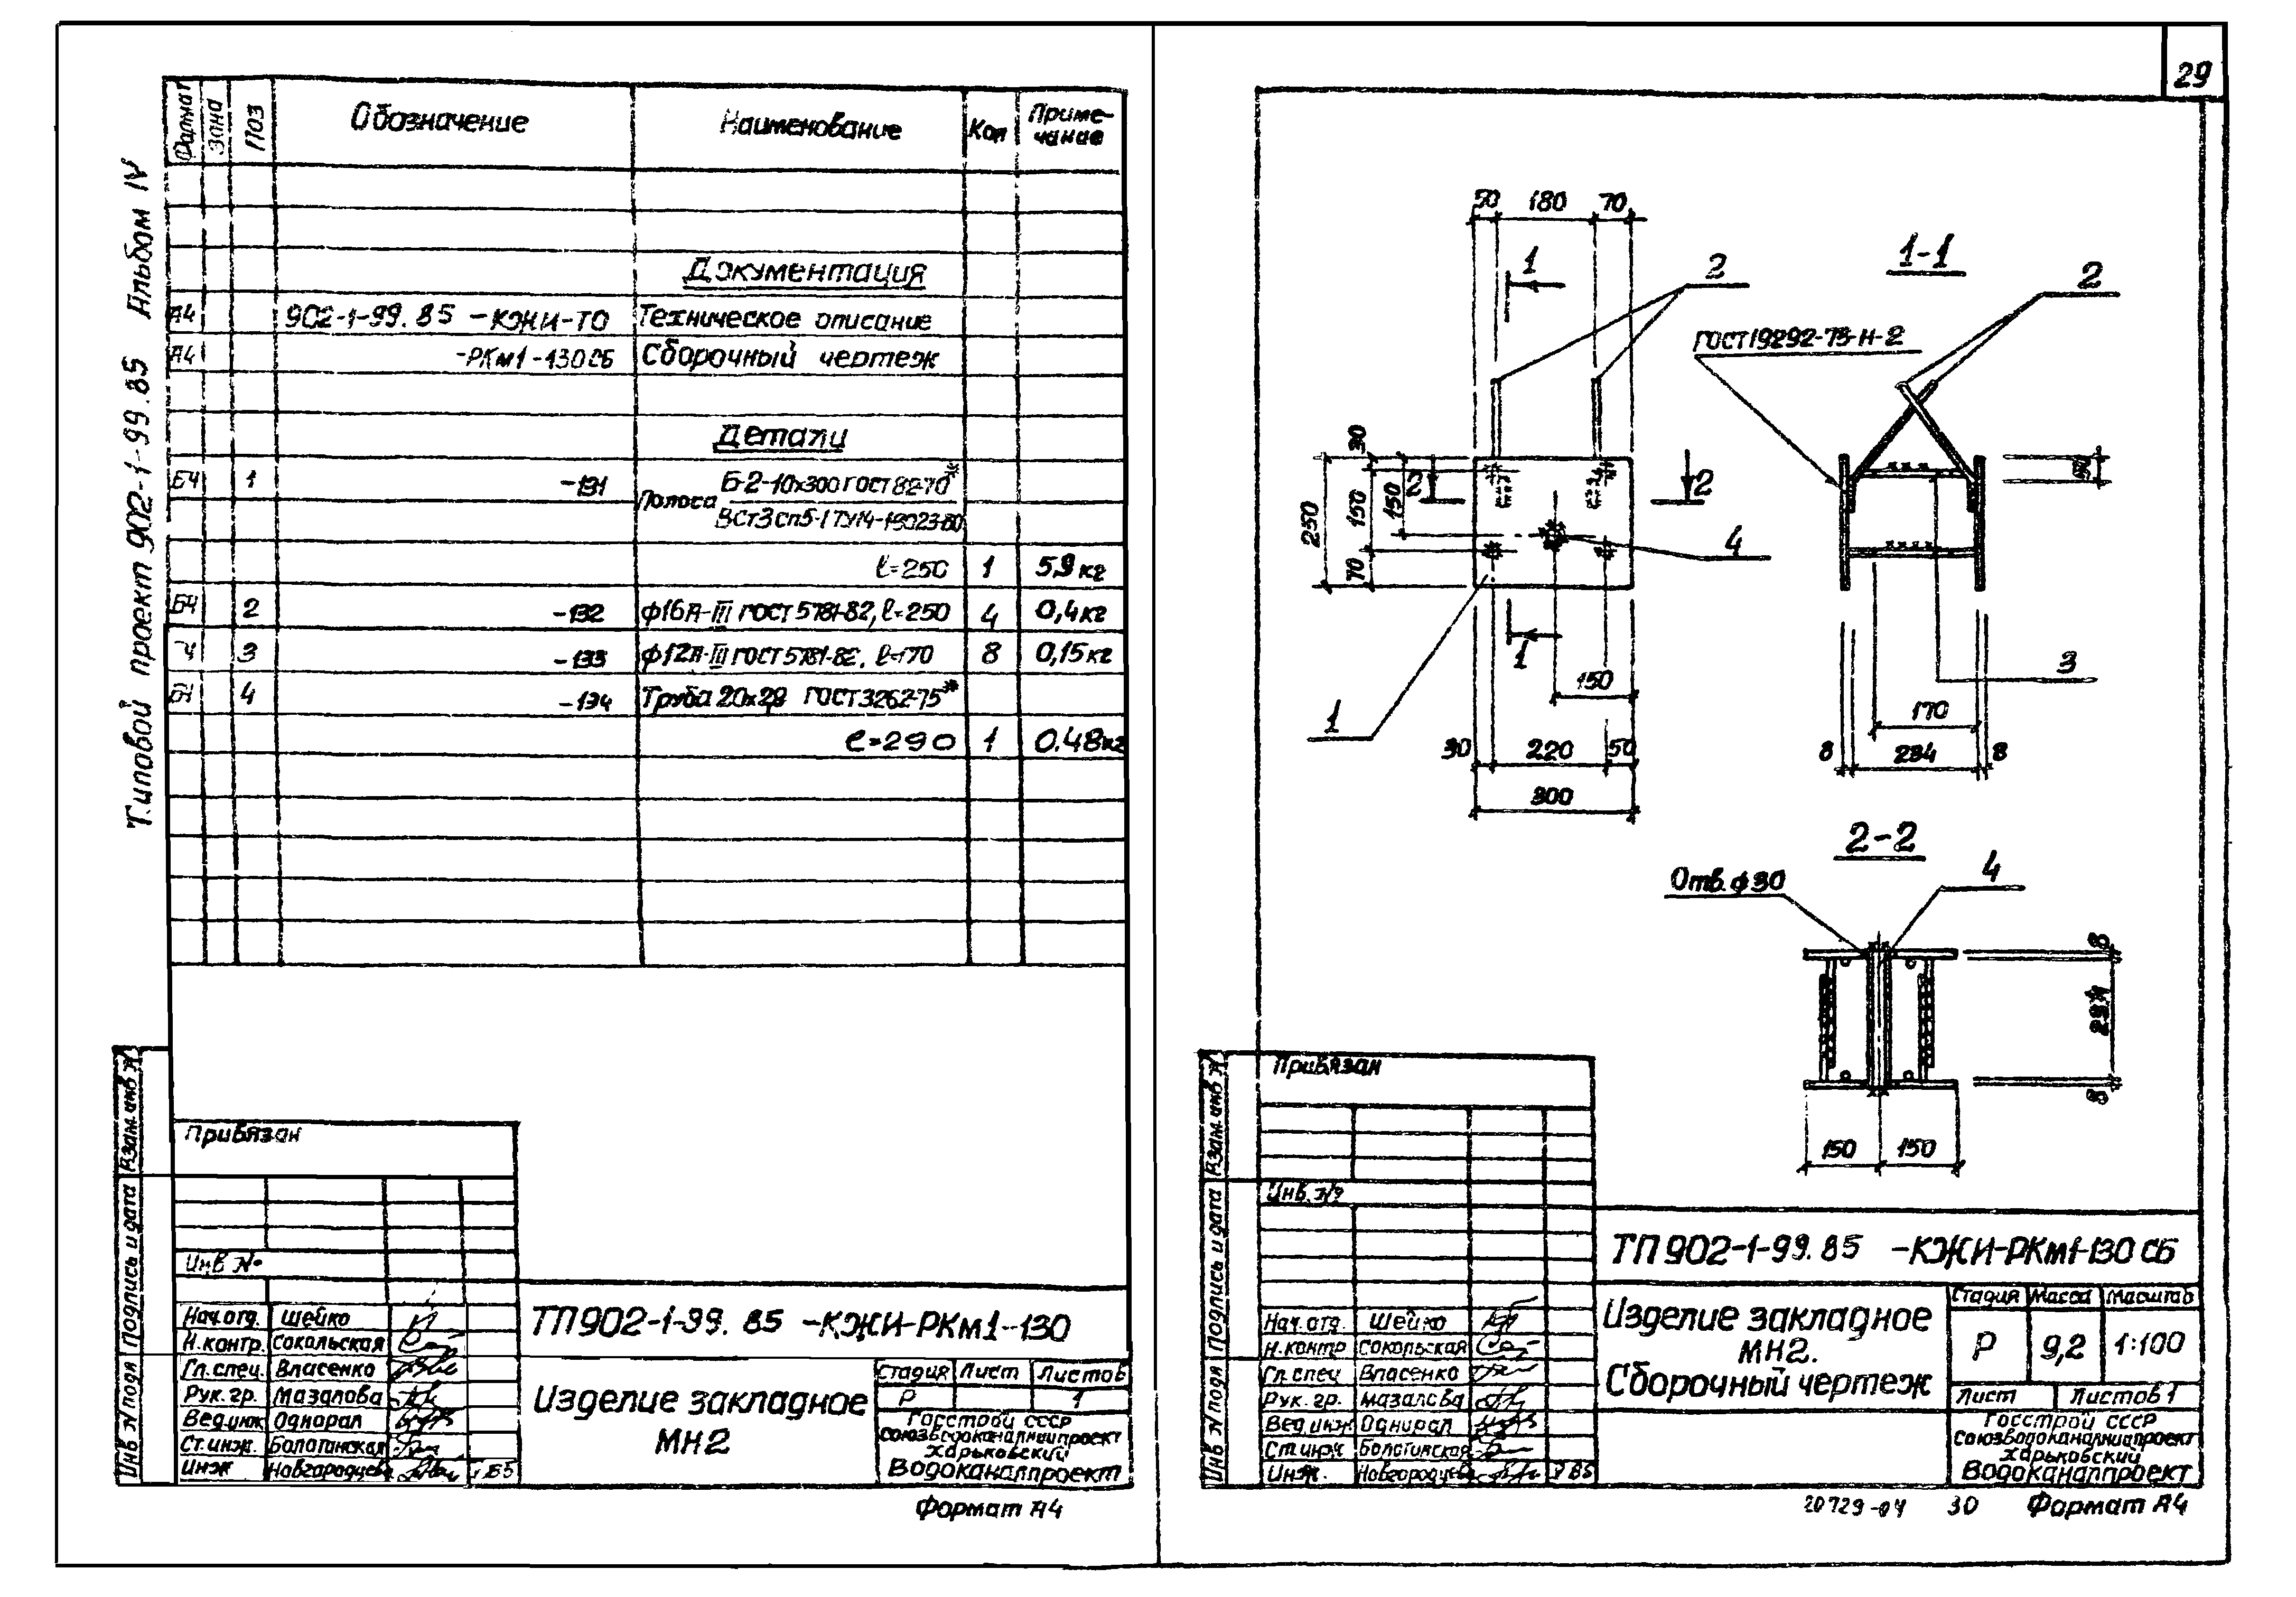 29
Типовой проект 902-1-99.85 Альбом IV
Формат Зона Поз Обозначение Наименование Кол Приме-
чание
Документация
А4 902-1-99.85 -КЖИ-ТО Техническое описание
А4 -РКм1-130СБ Сборочный чертеж
Детали
БЧ 1 -131 Полоса Б-2-10х300 ГОСТ 82-70*
ВСт3сп5-1 ТУ14-1-3023-80
ℓ=250 1 5,9 кг
БЧ 2 -132 ф16А-III ГОСТ 5781-82, ℓ=250 4 0,4кг
Ч 3 -133 ф12А-III ГОСТ 5781-82, ℓ=170 8 0,15кг
БЧ 4 -134 Труба 20х2,8 ГОСТ 3262-75*
ℓ=290 1 0.48кг
Взам. инв №
Подпись и дата
Инв № подл
Привязан
Инв №
Нач.отд. Шейко
Н.контр. Сокольская
Гл.спец. Власенко
Рук. гр. Мазалова
Вед.инж Однорал
Ст.инж. Болотинская
Инж Новгородцева V 85
ТП902-1-99.85 -КЖИ-РКм1-130
Изделие закладное
МН2
Стадия Лист Листов
Р 1
Госстрой СССР
Союзводоканалниипроект
Харьковский
Водоканалпроект
Формат А4
50 180 70
1
2
2 2
30
150
250
150
70
4
1
1
150
30 220 50
300
1-1
2
ГОСТ 19292-73-Н-2
50
3
170
8 234 8
2-2
Отв. ф30
4
8
234
8
150 150
Взам. инв №
Подпись и дата
Инв № подл
Привязан
Инв. №
Нач. отд. Шейко
Н.контр Сокольская
Гл. спец Власенко
Рук. гр. Мазалова
Вед. инж. Однорал
Ст.инж Болотинская
Инж. Новгородцева V 85
ТП902-1-99.85 -КЖИ-РКм1-130 СБ
Изделие закладное
МН2.
Сборочный чертеж
Стадия Масса Масштаб
Р 9,2 1:100
Лист Листов 1
Госстрой СССР
Союзводоканалниипроект
Харьковский
Водоканалпроект
20729-04 30 Формат А4